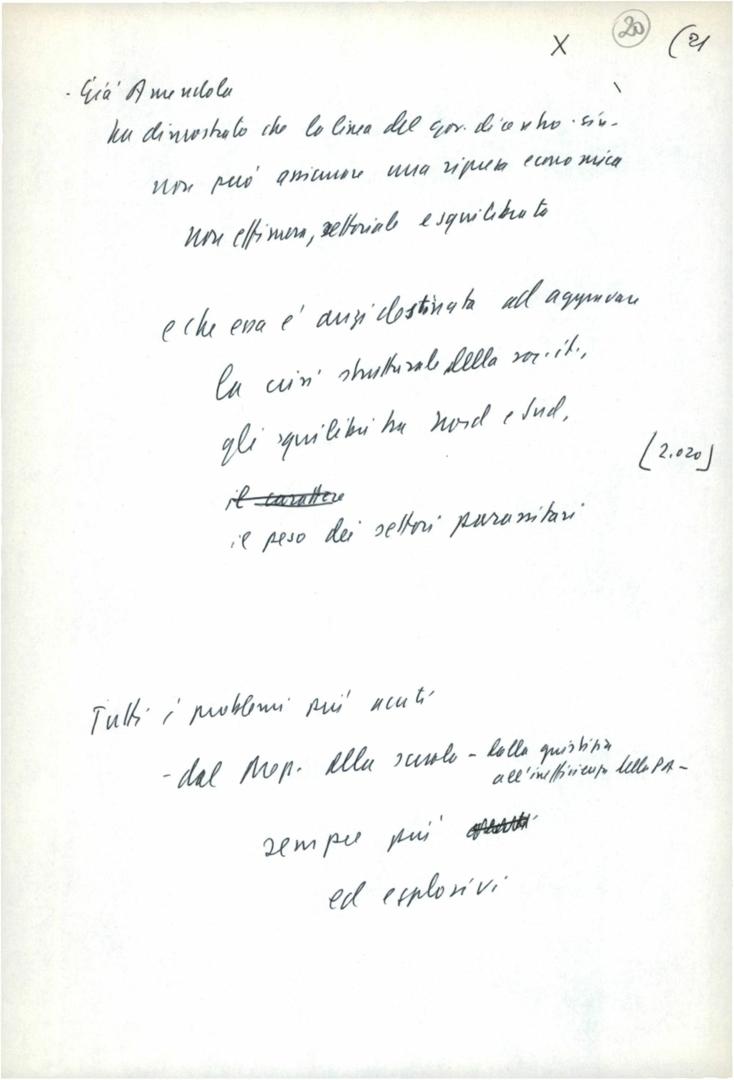 X 20 (21
- Già Amendola
ha dimostrato che la linea del gov. di centro-sin.
non può assicurare una ripresa economica
non effimera, settoriale e squilibrata
e che essa è anzi destinata ad aggravare
la crisi strutturale della soc. it.,
gli squilibri tra nord e sud,
[2.020]
il carattere
il peso dei settori parassitari
Tutti i problemi più acuti
- dal Mezz. alla scuola - dalla giustizia
all'inefficienza della PA -
sempre più
ed esplosivi